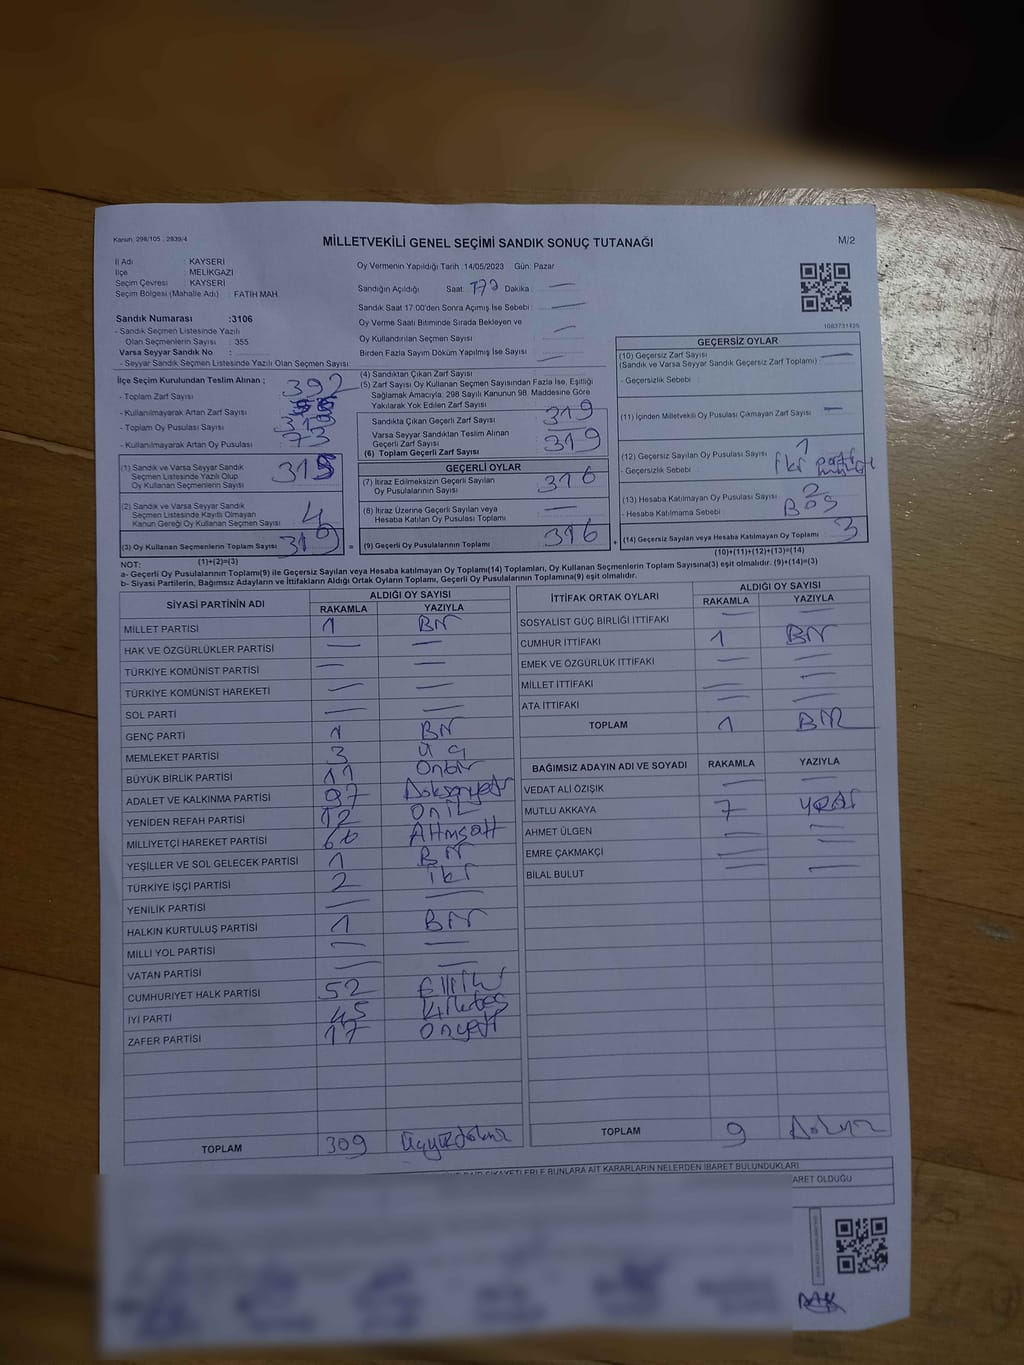 Kanun 298/105 , 2839/4
MİLLETVEKİLİ GENEL SEÇİMİ SANDIK SONUÇ TUTANAĞI
M/2
İl Adı : KAYSERİ
İlçe : MELİKGAZİ
Seçim Çevresi : KAYSERİ
Seçim Bölgesi (Mahalle Adı) : FATİH MAH.
Oy Vermenin Yapıldığı Tarih :14/05/2023 Gün: Pazar
Sandığın Açıldığı Saat: Dakika :
Sandık Saat 17:00'den Sonra Açımış İse Sebebi :
Oy Verme Saati Bitiminde Sırada Bekleyen ve
Oy Kullandırılan Seçmen Sayısı :
Birden Fazla Sayım Döküm Yapılmış İse Sayısı :
1083731425
Sandık Numarası :3106
- Sandık Seçmen Listesinde Yazılı
Olan Seçmenlerin Sayısı : 355
Varsa Seyyar Sandık No :
- Seyyar Sandık Seçmen Listesinde Yazılı Olan Seçmen Sayısı :
İlçe Seçim Kurulundan Teslim Alınan ;
- Toplam Zarf Sayısı : 392
- Kullanılmayarak Artan Zarf Sayısı :
- Toplam Oy Pusulası Sayısı :
- Kullanılmayarak Artan Oy Pusulası : 73
(1) Sandık ve Varsa Seyyar Sandık
Seçmen Listesinde Yazılı Olup
Oy Kullanan Seçmenlerin Sayısı 315
(2) Sandık ve Varsa Seyyar Sandık
Seçmen Listesinde Kayıtlı Olmayan
Kanun Gereği Oy Kullanan Seçmen Sayısı : 4
(3) Oy Kullanan Seçmenlerin Toplam Sayısı 319
(1)+(2)=(3)
(4) Sandıktan Çıkan Zarf Sayısı :
(5) Zarf Sayısı Oy Kullanan Seçmen Sayısından Fazla İse, Eşitliği
Sağlamak Amacıyla; 298 Sayılı Kanunun 98. Maddesine Göre
Yakılarak Yok Edilen Zarf Sayısı :
Sandıkta Çıkan Geçerli Zarf Sayısı : 319
Varsa Seyyar Sandıktan Teslim Alınan
Geçerli Zarf Sayısı :
(6) Toplam Geçerli Zarf Sayısı : 319
GEÇERLİ OYLAR
(7) İtiraz Edilmeksizin Geçerli Sayılan
Oy Pusulalarının Sayısı : 316
(8) İtiraz Üzerine Geçerli Sayılan veya
Hesaba Katılan Oy Pusulası Toplamı :
= (9) Geçerli Oy Pusulalarının Toplamı : 316
GEÇERSİZ OYLAR
(10) Geçersiz Zarf Sayısı :
(Sandık ve Varsa Seyyar Sandık Geçersiz Zarf Toplamı)
- Geçersizlik Sebebi :
(11) İçinden Milletvekili Oy Pusulası Çıkmayan Zarf Sayısı :
(12) Geçersiz Sayılan Oy Pusulası Sayısı : 1
- Geçersizlik Sebebi :
(13) Hesaba Katılmayan Oy Pusulası Sayısı : 2
- Hesaba Katılmama Sebebi : BOŞ
+ (14) Geçersiz Sayılan veya Hesaba Katılmayan Oy Toplamı : 3
(10)+(11)+(12)+(13)=(14)
NOT:
a- Geçerli Oy Pusulalarının Toplamı(9) ile Geçersiz Sayılan veya Hesaba katılmayan Oy Toplamı(14) Toplamları, Oy Kullanan Seçmenlerin Toplam Sayısına(3) eşit olmalıdır. (9)+(14)=(3)
b- Siyasi Partilerin, Bağımsız Adayların ve İttifakların Aldığı Ortak Oyların Toplamı, Geçerli Oy Pusulalarının Toplamına(9) eşit olmalıdır.
SİYASİ PARTİNİN ADI ALDIĞI OY SAYISI
RAKAMLA YAZIYLA
MİLLET PARTİSİ 1 BİR
HAK VE ÖZGÜRLÜKLER PARTİSİ
TÜRKİYE KOMÜNİST PARTİSİ
TÜRKİYE KOMÜNİST HAREKETİ
SOL PARTİ
GENÇ PARTİ 1 BİR
MEMLEKET PARTİSİ 3 ÜÇ
BÜYÜK BİRLİK PARTİSİ 11 Onbir
ADALET VE KALKINMA PARTİSİ 97 Doksanyedi
YENİDEN REFAH PARTİSİ 12 Oniki
MİLLİYETÇİ HAREKET PARTİSİ 66 Altmışaltı
YEŞİLLER VE SOL GELECEK PARTİSİ 1 BİR
TÜRKİYE İŞÇİ PARTİSİ 2 İki
YENİLİK PARTİSİ
HALKIN KURTULUŞ PARTİSİ 1 BİR
MİLLİ YOL PARTİSİ
VATAN PARTİSİ
CUMHURİYET HALK PARTİSİ 52 Elliiki
İYİ PARTİ 45 Kırkbeş
ZAFER PARTİSİ 17 Onyedi
TOPLAM 309 Üçyüzdokuz
İTTİFAK ORTAK OYLARI ALDIĞI OY SAYISI
RAKAMLA YAZIYLA
SOSYALİST GÜÇ BİRLİĞİ İTTİFAKI
CUMHUR İTTİFAKI 1 BİR
EMEK VE ÖZGÜRLÜK İTTİFAKI
MİLLET İTTİFAKI
ATA İTTİFAKI
TOPLAM 1 BİR
BAĞIMSIZ ADAYIN ADI VE SOYADI RAKAMLA YAZIYLA
VEDAT ALİ ÖZIŞIK
MUTLU AKKAYA 7 YEDİ
AHMET ÜLGEN
EMRE ÇAKMAKÇİ
BİLAL BULUT
TOPLAM 9
DAİR ŞİKAYETLERLE BUNLARA AİT KARARLARIN NELERDEN İBARET BULUNDUKLARI
ARET OLDUĞU